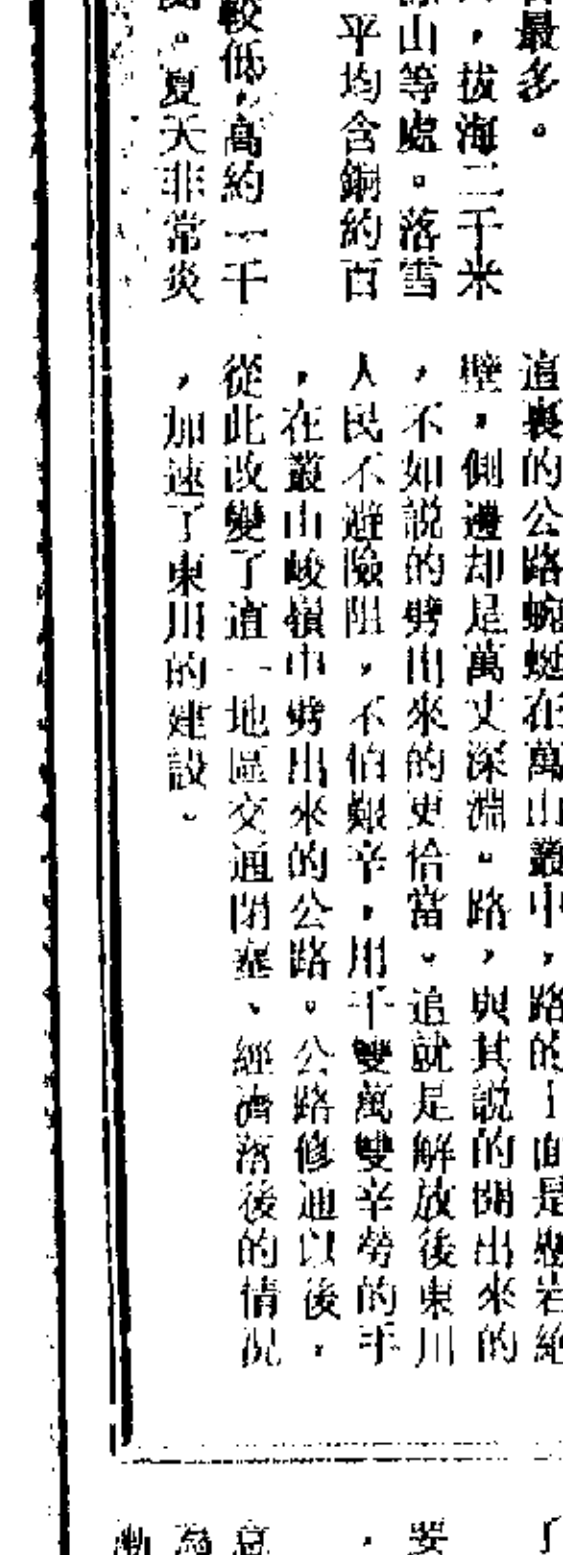 最多。
，拔海二千米
山等處。落雪
平均含銅約百
較低，高約一千
。夏天非常炎
這裏的公路蜿蜒在萬山叢中，路的上面是懸岩絕
壁，側邊却是萬丈深淵。路，與其説的開出來的
，不如説的劈出來的更恰當。這就是解放後東川
人民不避險阻，不怕艱辛，用千雙萬雙辛勞的手
，在叢山峻嶺中劈出來的公路。公路修通以後，
從此改變了這一地區交通閉塞、經濟落後的情況
，加速了東川的建設。
了
，要
意
為
漸